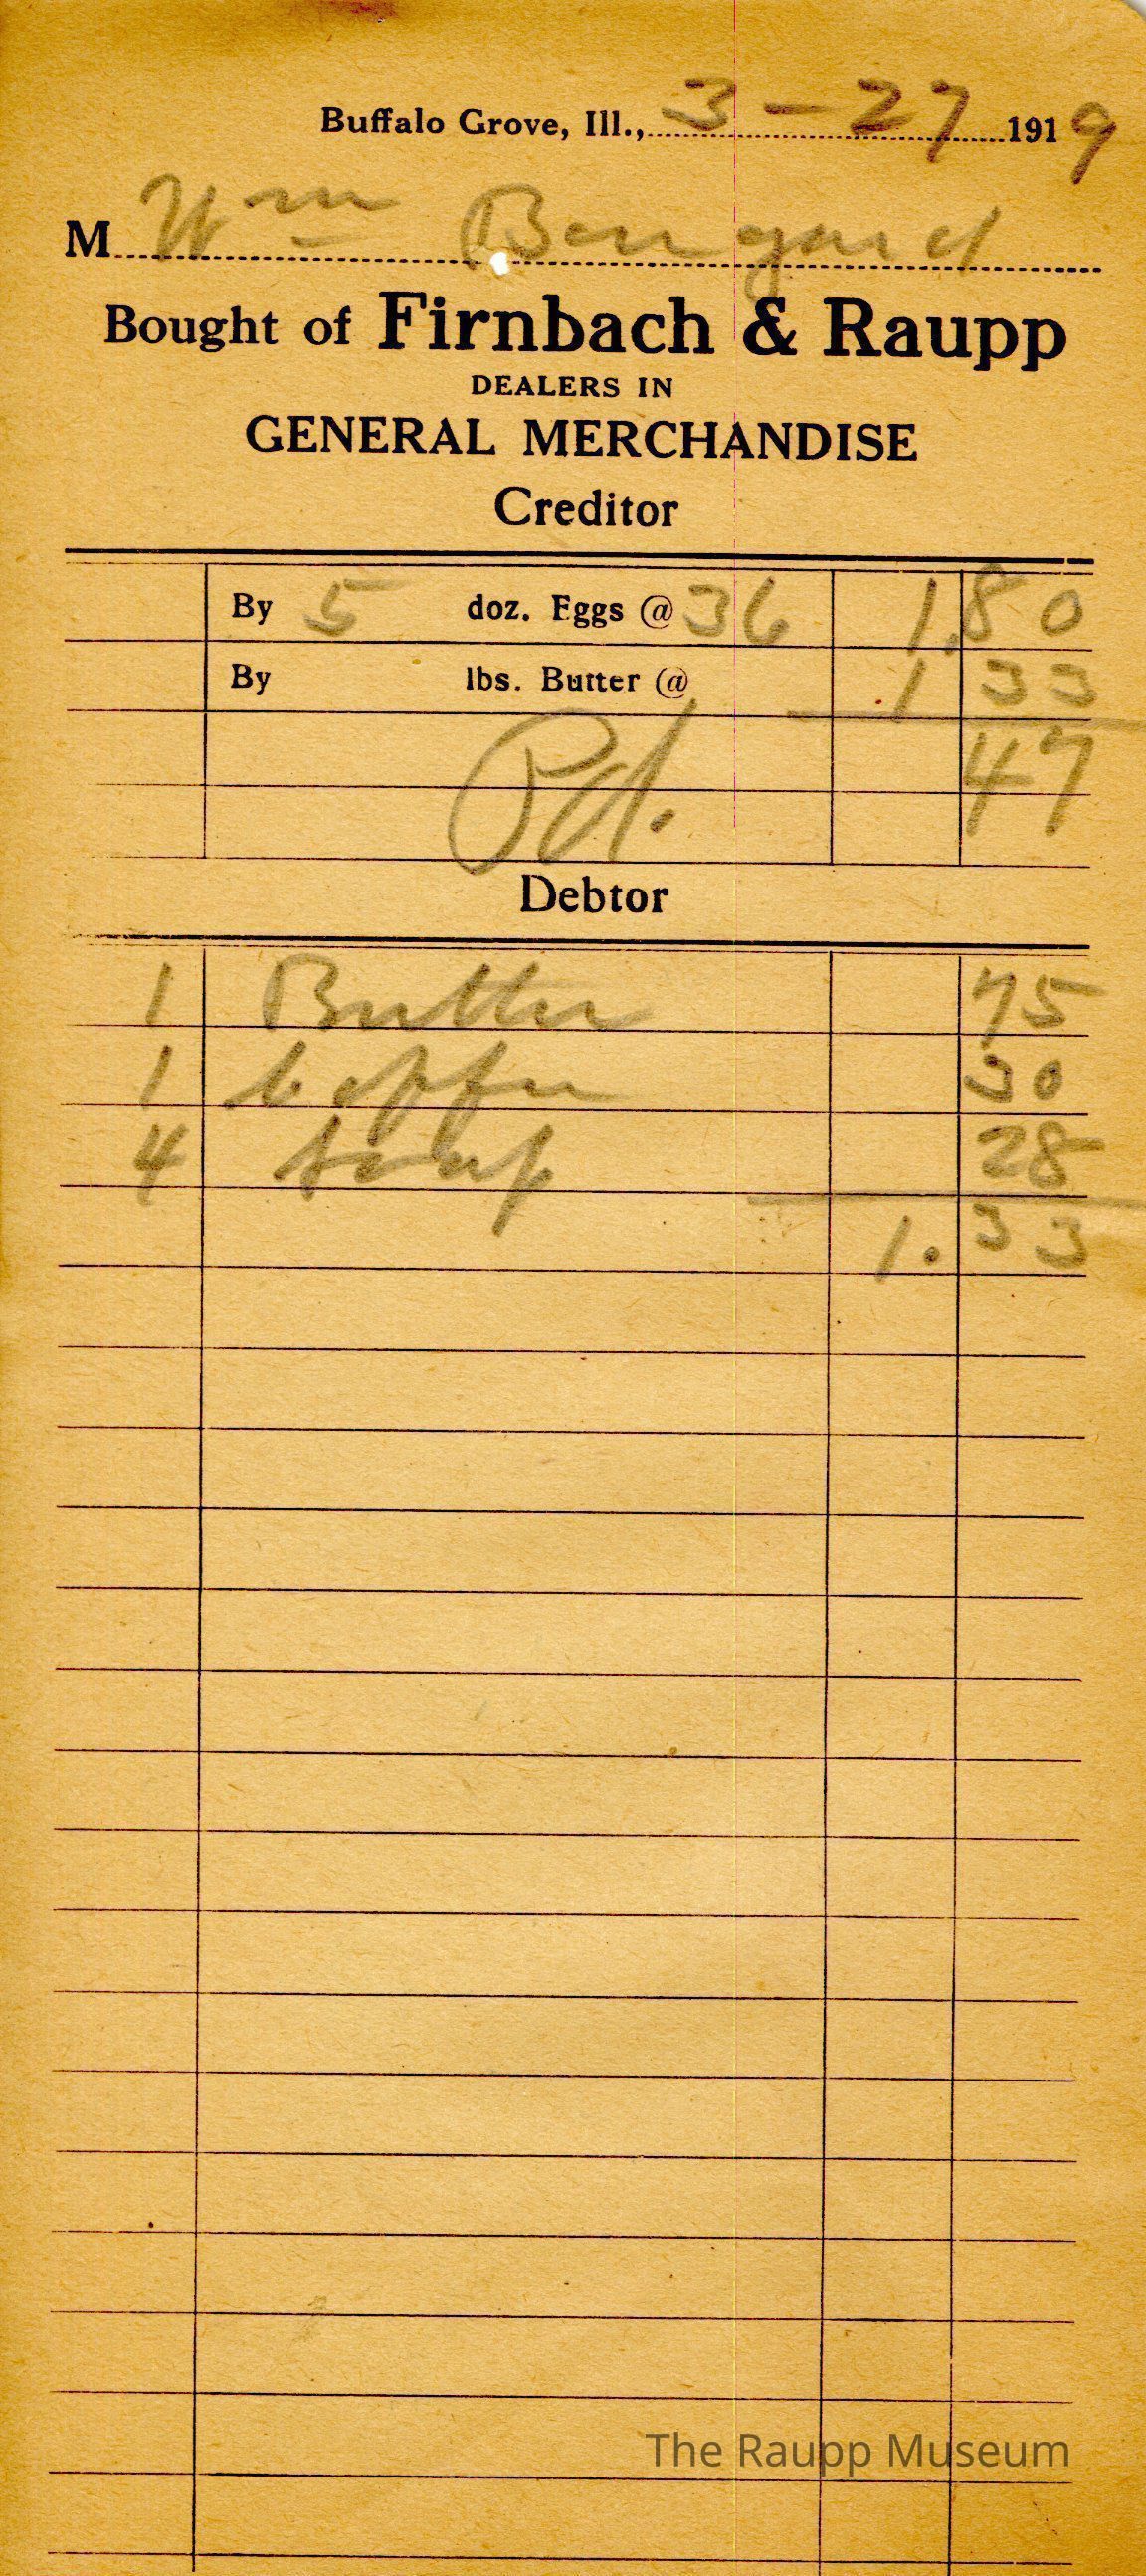 Buffalo Grove, Ill., 3-27 1919
M Wm Bengard
Bought of Firnbach & Raupp
DEALERS IN
GENERAL MERCHANDISE
Creditor
By 5 doz. Eggs @ 36 1.80
By lbs. Butter @ 1 33
Pd. 47
Debtor
1 Butter 75
1 Coffee 30
4 Soap 28
1.33
The Raupp Museum